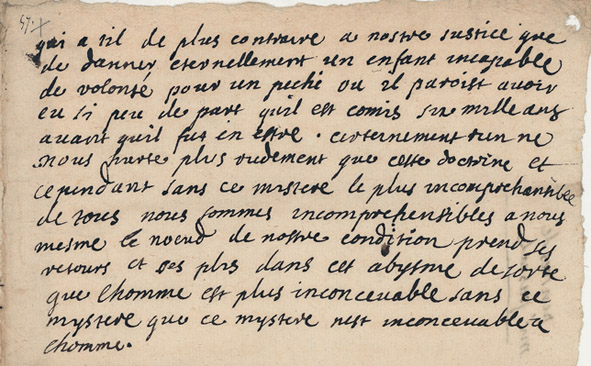 47. +
qui a til de plus contraire a nostre justice que
de danner eternellement un enfant incapable
de volonté pour un peché ou il paroist avoir
eu si peu de part quil est comis six mille ans
avant quil fut en estre. certernement rien ne
nous hurte plus rudement que cette doctrine et
cependant sans ce mistere le plus incomprehensible
de tous nous sommes incomprehensibles a nous
mesme le noeud de nostre condition prend ses
retours et ses plis dans cet abysme de sorte
que lhomme est plus inconcevable sans ce
mystere que ce mystere nest inconcevable a
lhomme.